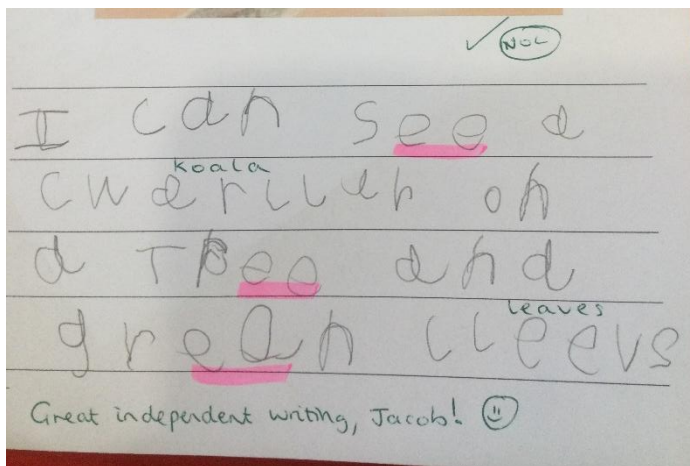 NOL
I can see a
koala
cwarller on
a Tree and
leaves
green lleevs
Great independent writing, Jacob!